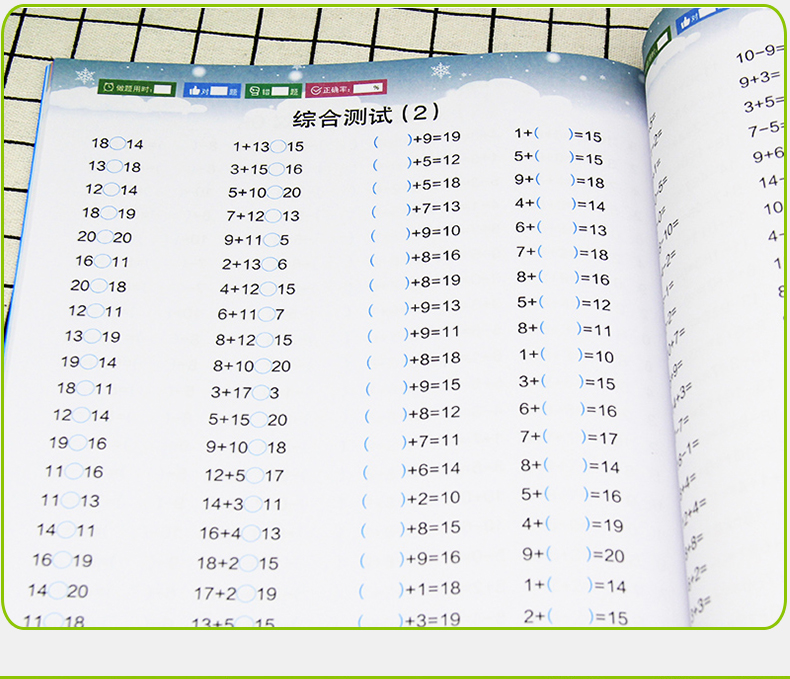 做题用时: 对 题 错 题 正确率: %
综合测试(2)
18○14 1+13○15 ( )+9=19 1+( )=15
13○18 3+15○16 ( )+5=12 5+( )=15
12○14 5+10○20 ( )+5=18 9+( )=18
18○19 7+12○13 ( )+7=13 4+( )=14
20○20 9+11○5 ( )+9=10 6+( )=13
16○11 2+13○6 ( )+8=16 7+( )=18
20○18 4+12○15 ( )+8=19 8+( )=16
12○11 6+11○7 ( )+9=13 5+( )=12
13○19 8+12○15 ( )+9=11 8+( )=11
19○14 8+10○20 ( )+8=18 1+( )=10
18○11 3+17○3 ( )+9=15 3+( )=15
12○14 5+15○20 ( )+8=12 6+( )=16
19○16 9+10○18 ( )+7=11 7+( )=17
11○16 12+5○17 ( )+6=14 8+( )=14
11○13 14+3○11 ( )+2=10 5+( )=16
14○11 16+4○13 ( )+8=15 4+( )=19
16○19 18+2○15 ( )+9=16 9+( )=20
14○20 17+2○19 ( )+1=18 1+( )=14
11○18 13+5○15 ( )+3=19 2+( )=15
对
10-9=
9+3=
3+5=
7-5=
9+6
14-
10
4-
1